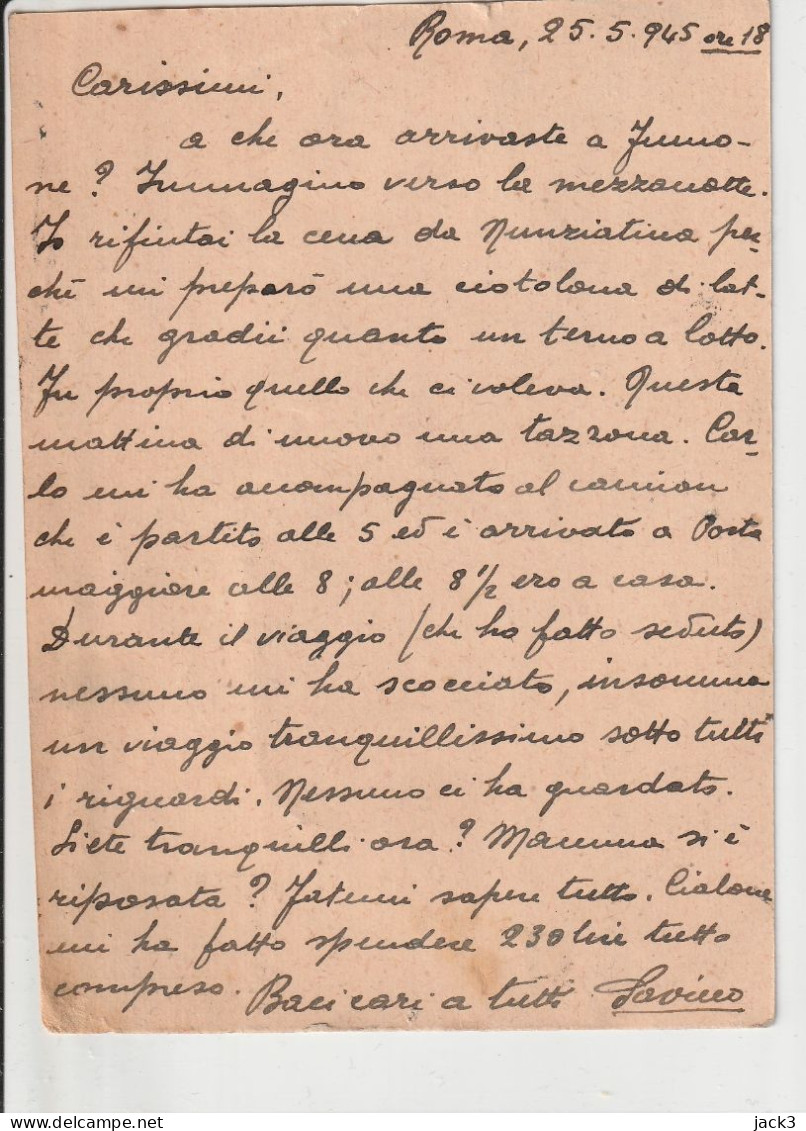 Roma, 25.5.945 ore 18
Carissimi,
a che ora arrivaste a Fumo-
ne? Immagino verso la mezzanotte.
Io rifiutai la cena da Nunziatina per-
chè mi preparò una ciotolona di lat-
te che gradii quanto un terno a lotto.
Fu proprio quello che ci voleva. Questa
mattina di nuovo una tazzona. Car-
lo mi ha accompagnato al camion
che è partito alle 5 ed è arrivato a Porta
maggiore alle 8; alle 8 1/2 ero a casa.
Durante il viaggio (che ho fatto seduto)
nessuno mi ha scocciato, insomma
un viaggio tranquillissimo sotto tutti
i riguardi. Nessuno ci ha guardato.
Siete tranquilli ora? Mamma si è
riposata? Fatemi sapere tutto. Cialone
mi ha fatto spendere 230 lire tutto
compreso. Baci cari a tutti Savino
jack3